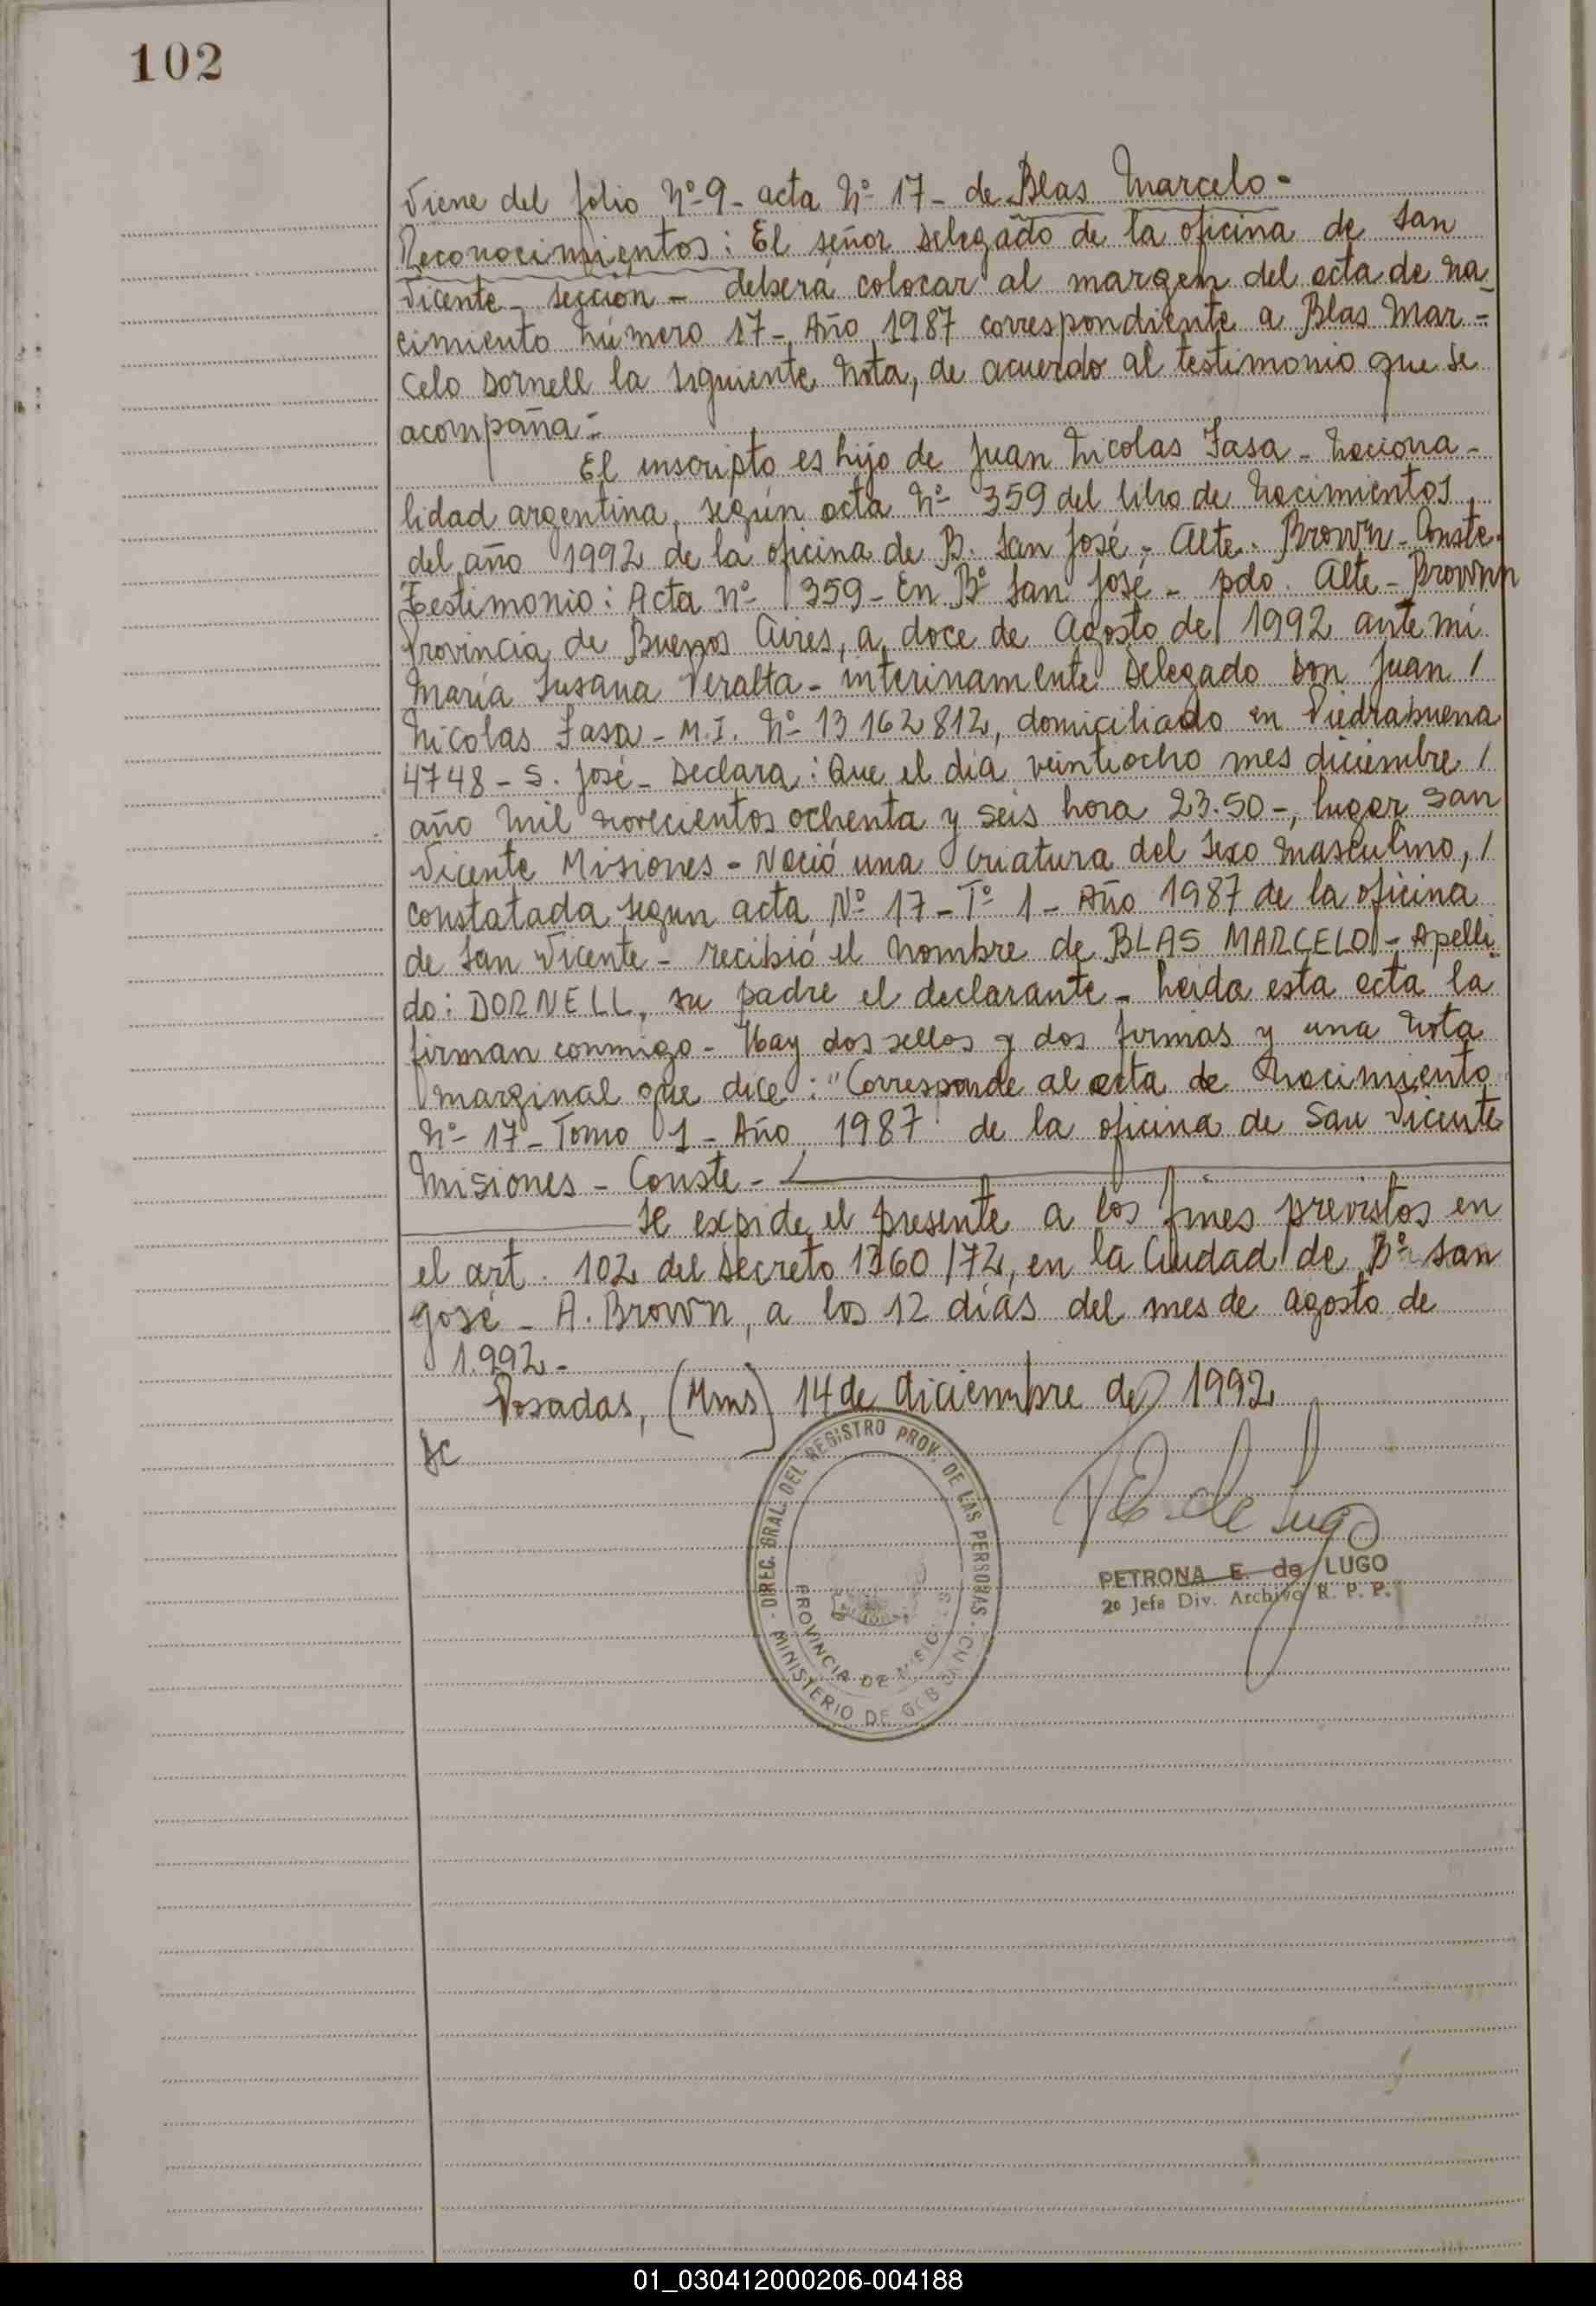 102
Viene del folio Nº 9 - acta Nº 17 - de Blas Marcelo -
Reconocimientos: El señor Delegado de la oficina de San
Vicente - sección - deberá colocar al margen del acta de na-
cimiento número 17 - Año 1987 correspondiente a Blas Mar-
celo Dornell la siguiente nota, de acuerdo al testimonio que se
acompaña:-
El inscripto es hijo de Juan Nicolas Fasa - naciona-
lidad argentina, según acta Nº 359 del libro de Nacimientos
del año 1992 de la oficina de B. San José - Alte. Brown - Conste.
Testimonio: Acta nº 359 - En Bº San José - pdo. Alte - Brown
Provincia de Buenos Aires, a doce de Agosto de 1992 ante mí
María Susana Peralta - interinamente Delegado Don Juan /
Nicolas Fasa - M.I. Nº 13 162 812, domiciliado en Piedrabuena
4748 - S. José - Declara: Que el día veintiocho mes diciembre /
año mil novecientos ochenta y seis hora 23.50 -, lugar San
Vicente Misiones - Nació una criatura del sexo masculino, /
constatada segun acta Nº 17 - Tº 1 - Año 1987 de la oficina
de San Vicente - recibió el nombre de BLAS MARCELO - Apelli-
do: DORNELL, su padre el declarante - Leída esta acta la
firman conmigo - Hay dos sellos y dos firmas y una nota
marginal que dice: "Corresponde al acta de Nacimiento
Nº 17 - Tomo 1 - Año 1987 de la oficina de San Vicente
Misiones - Conste -
Se expide el presente a los fines previstos en
el art. 102 del Decreto 1360/72, en la Ciudad de Bº San
José - A. Brown, a los 12 días del mes de agosto de
1.992 -
Posadas, (Mnes) 14 de diciembre de 1992
Sc
DIREC. GRAL. DEL REGISTRO PROV. DE LAS PERSONAS
PROVINCIA DE MISIONES
MINISTERIO DE GOBIERNO
P E. de Lugo
PETRONA E. de LUGO
2º Jefe Div. Archivo R. P. P.
01_030412000206-004188